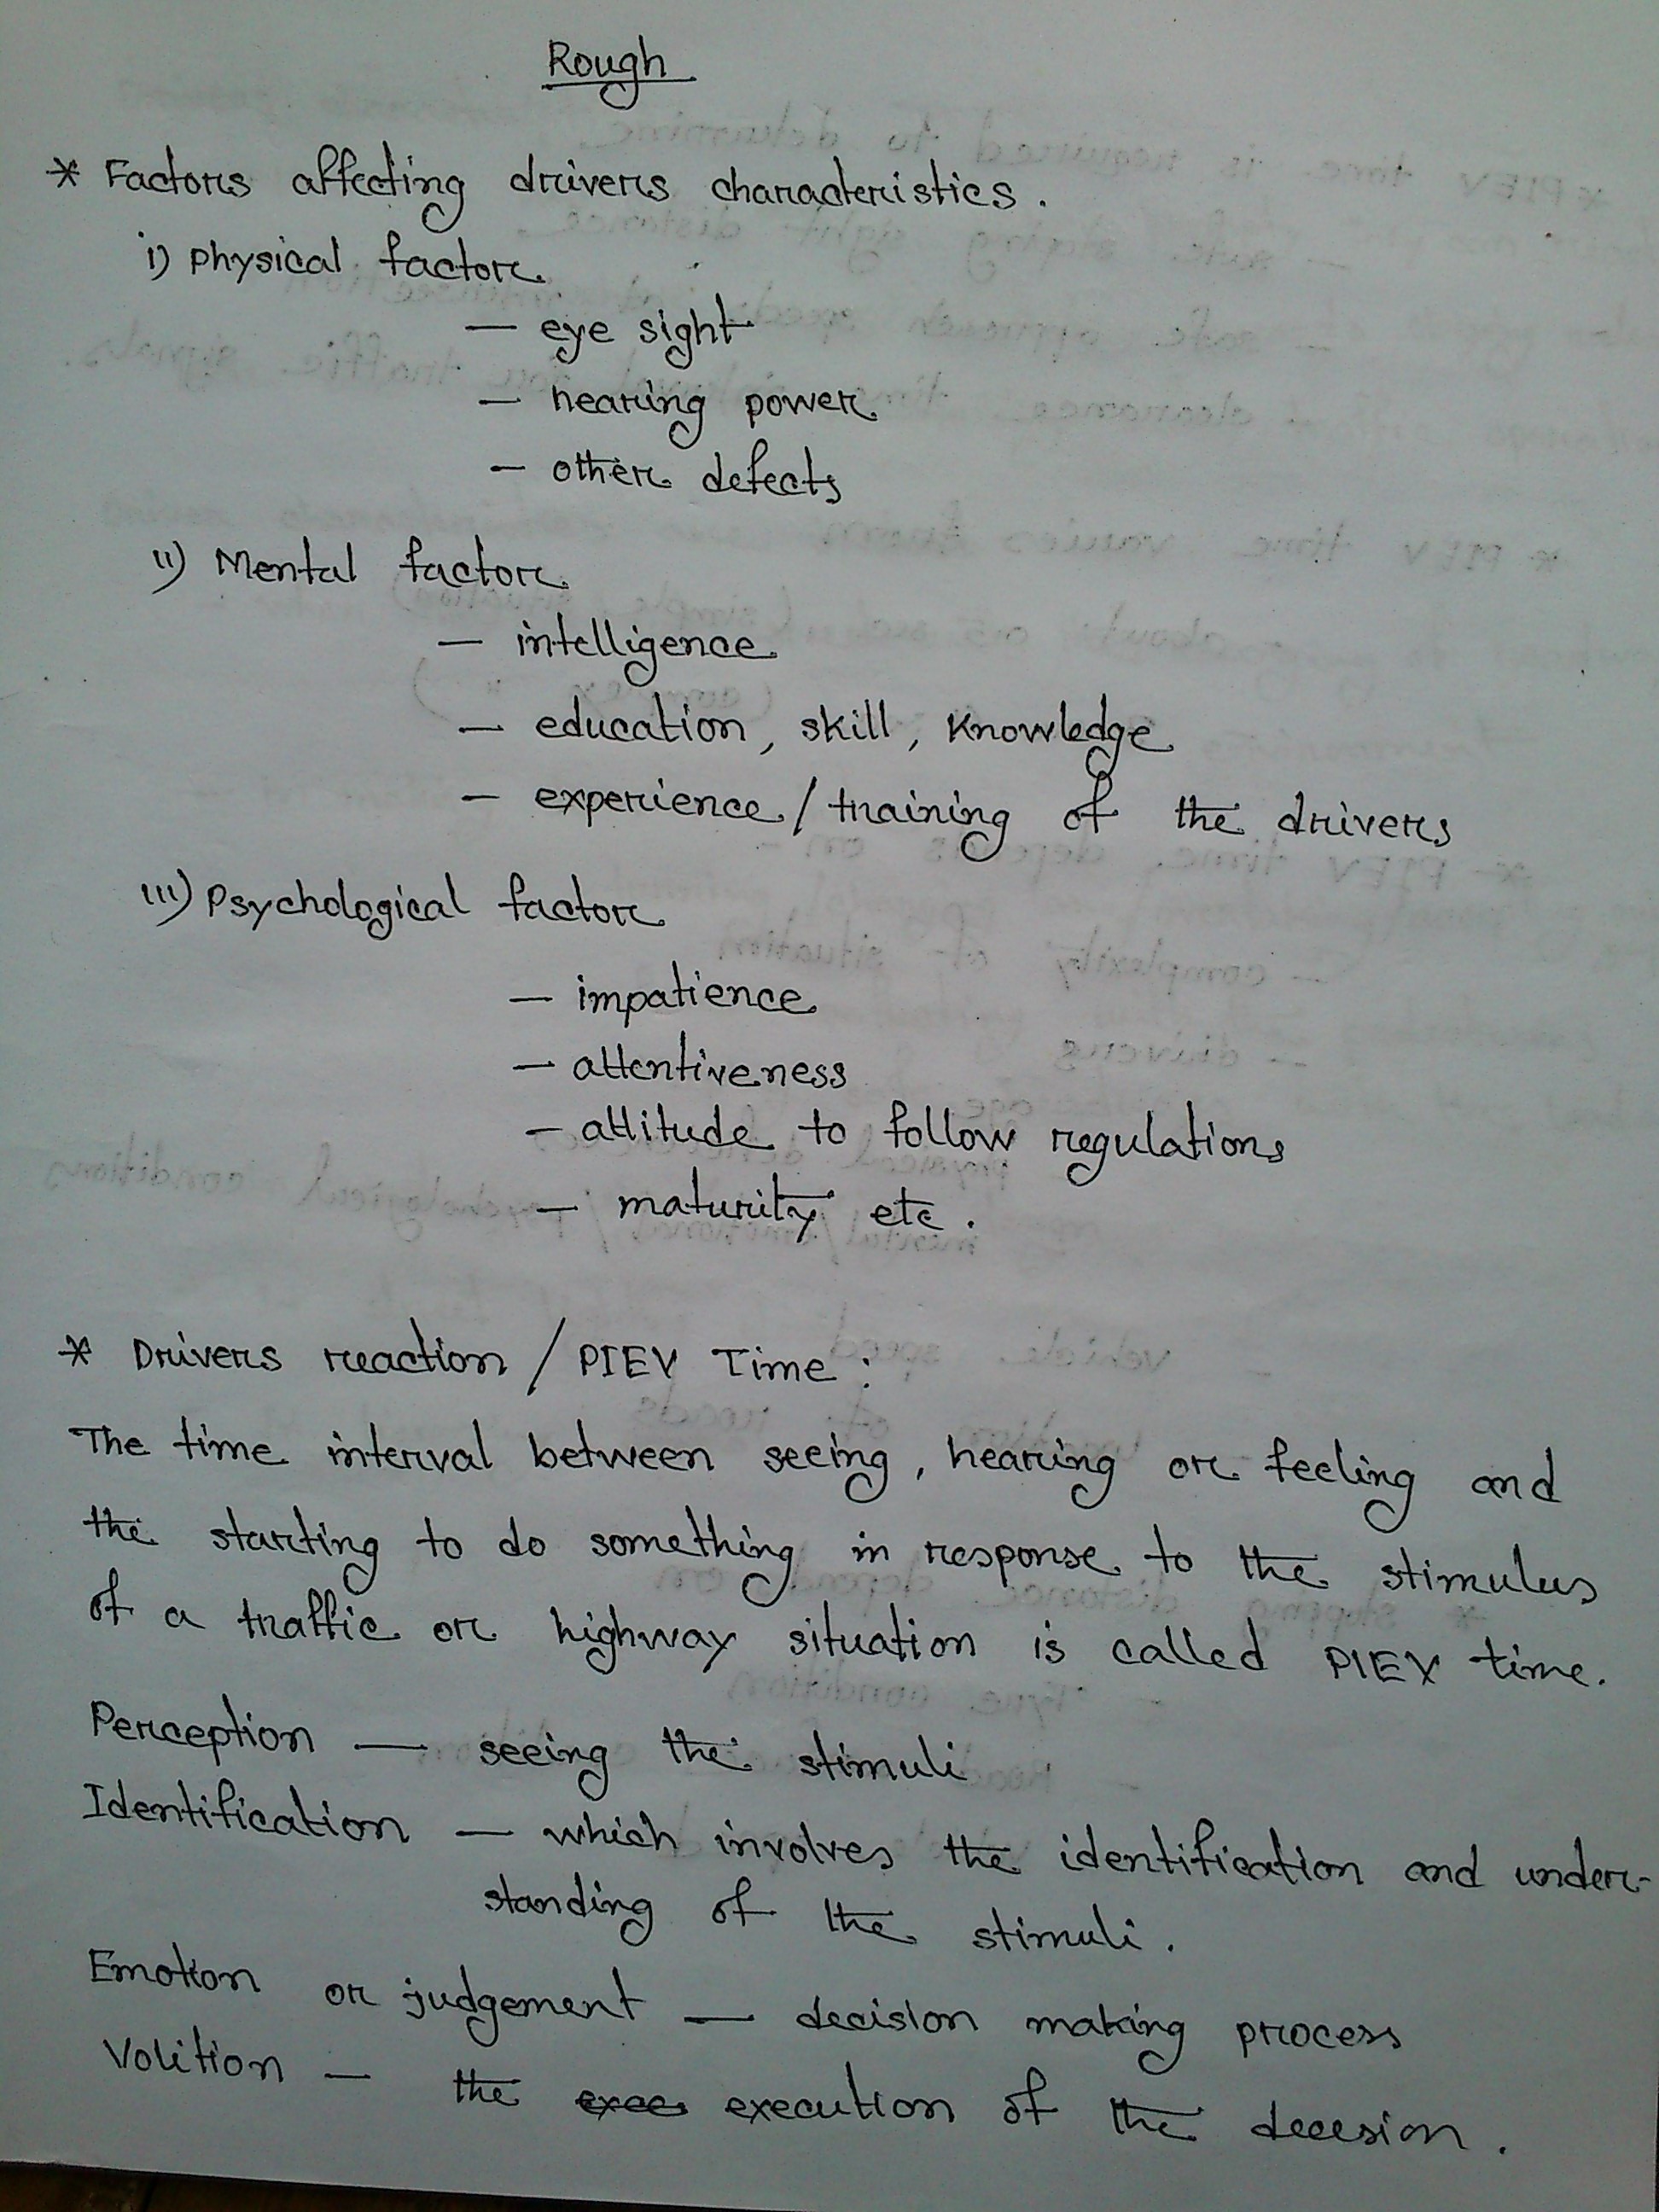 Rough
* Factors affecting drivers characteristics.
i) Physical factor
— eye sight
— hearing power
— other defects
ii) Mental factor
— intelligence
— education, skill, knowledge
— experience / training of the drivers
iii) Psychological factor
— impatience
— attentiveness
— attitude to follow regulations
— maturity etc.
* Drivers reaction / PIEV Time :
The time interval between seeing, hearing or feeling and
the starting to do something in response to the stimulus
of a traffic or highway situation is called PIEV time.
Perception — seeing the stimuli
Identification — which involves the identification and under-
standing of the stimuli.
Emotion or judgement — decision making process
Volition — the exce execution of the decesion.